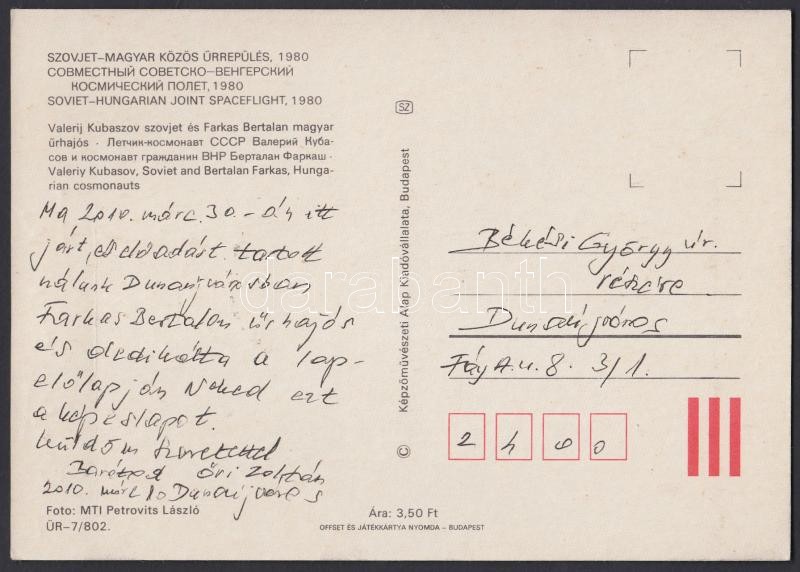 SZOVJET–MAGYAR KÖZÖS ŰRREPÜLÉS, 1980
СОВМЕСТНЫЙ СОВЕТСКО–ВЕНГЕРСКИЙ
КОСМИЧЕСКИЙ ПОЛЕТ, 1980
SOVIET–HUNGARIAN JOINT SPACEFLIGHT, 1980
Valerij Kubaszov szovjet és Farkas Bertalan magyar
űrhajós · Летчик-космонавт СССР Валерий Куба-
сов и космонавт гражданин ВНР Берталан Фаркаш ·
Valeriy Kubasov, Soviet and Bertalan Farkas, Hunga-
rian cosmonauts
Ma 2010. márc. 30-án itt
járt, előadást tartott
nálunk Dunaújvárosban
Farkas Bertalan űrhajós
és dedikálta a lap-
előlapján Neked ezt
a képeslapot.
Küldöm szeretettel
Barátod Őri Zoltán
2010. márc 30 Dunaújváros
Foto: MTI Petrovits László
ŰR-7/802.
SZ
© Képzőművészeti Alap Kiadóvállalata, Budapest
Békési György úr.
részére
Dunaújváros
Fáy A. u. 8. 3/1.
2 4 0 0
Ára: 3,50 Ft
OFFSET ÉS JÁTÉKKÁRTYA NYOMDA – BUDAPEST
darabanth